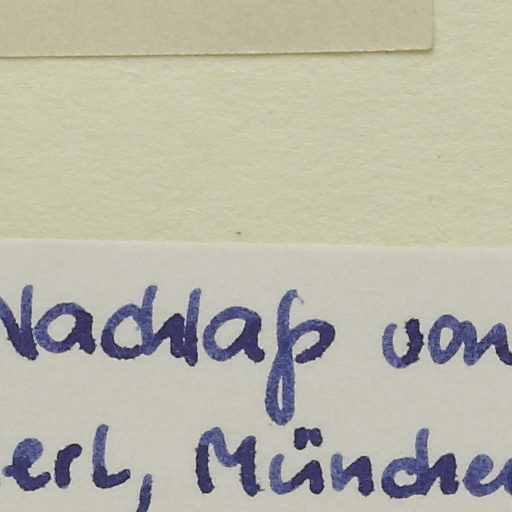 Nachlaß von
erl, München